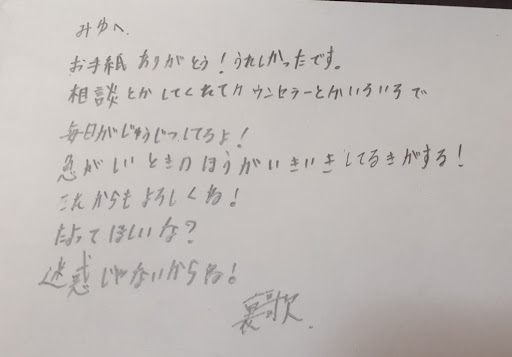 みゆへ.
お手紙ありがとう！うれしかったです。
相談とかしてくれてカウンセラーとかいろいろで
毎日がじゅうじつしてるよ！
急がしいときのほうがいきいきしてるきがする！
これからもよろしくね！
たよってほしいな？
迷惑じゃないからね！
裏歌.